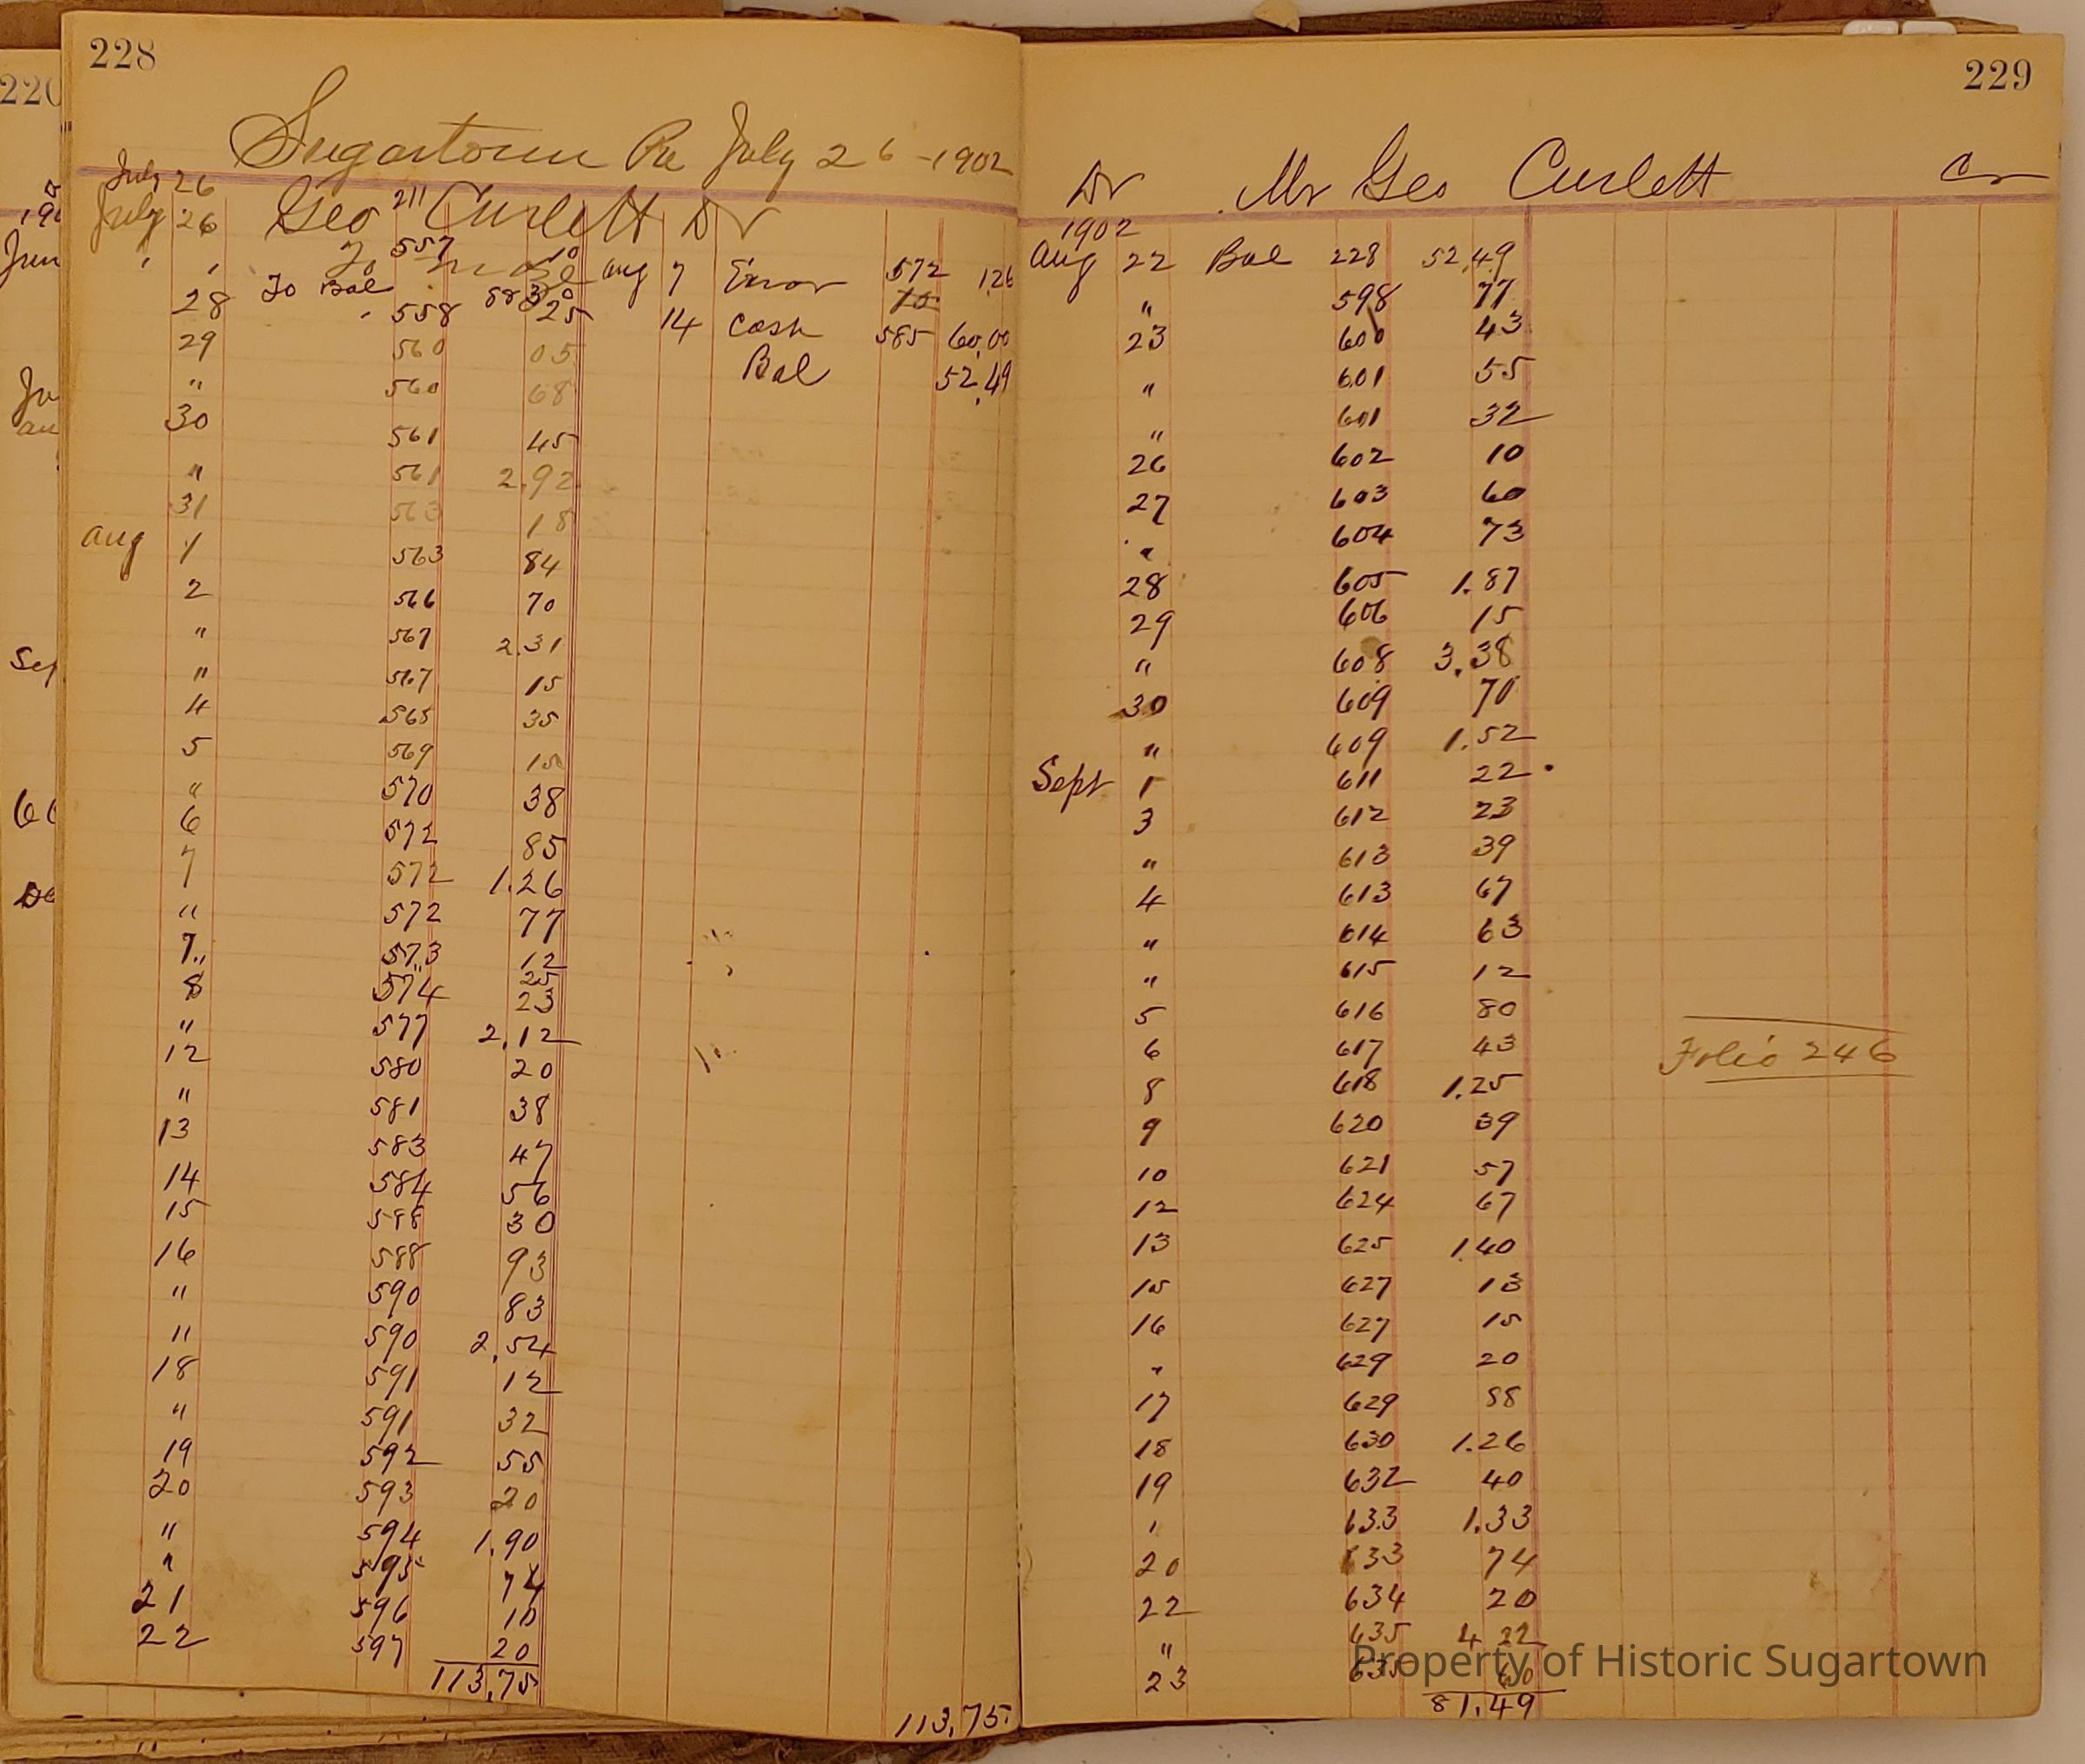 228
Sugartown Pa July 26 - 1902
July 26
July 26 Geo 211 Curlett Dr
" " To 557 10 Aug 7 Error 572 1.26
To Bal 883
28 558 25 14 Cash 585 60.00
29 560 05 Bal 52.49
" 560 68
30 561 45
" 561 2.92
31 563 18
Aug 1 563 84
2 566 70
" 567 2.31
" 567 15
4 565 35
5 569 15
" 570 38
6 572 85
7 572 1.26
" 572 77
7 573 12
" 25
8 574 23
" 577 2.12
12 580 20
" 581 38
13 583 47
14 584 56
15 588 30
16 588 93
" 590 83
" 590 2.54
18 591 12
" 591 32
19 592 55
20 593 20
" 594 1.90
" 595 74
21 596 10
22 597 20
113.75
113.75
229
Dr Mr Geo Curlett Cr
1902
Aug 22 Bal 228 52.49
" 598 77
23 600 43
" 601 55
" 601 32
26 602 10
27 603 60
" 604 73
28 605 1.87
29 606 15
" 608 3.38
30 609 70
" 609 1.52
Sept 1 611 22
3 612 23
" 613 39
4 613 67
" 614 63
" 615 12
5 616 80
6 617 43
Folio 246
8 618 1.25
9 620 39
10 621 57
12 624 67
13 625 1.40
15 627 13
16 627 15
" 629 20
17 629 58
18 630 1.26
19 632 40
" 633 1.33
20 633 74
22 634 20
" 635 4 22
23 635 60
81.49
Property of Historic Sugartown